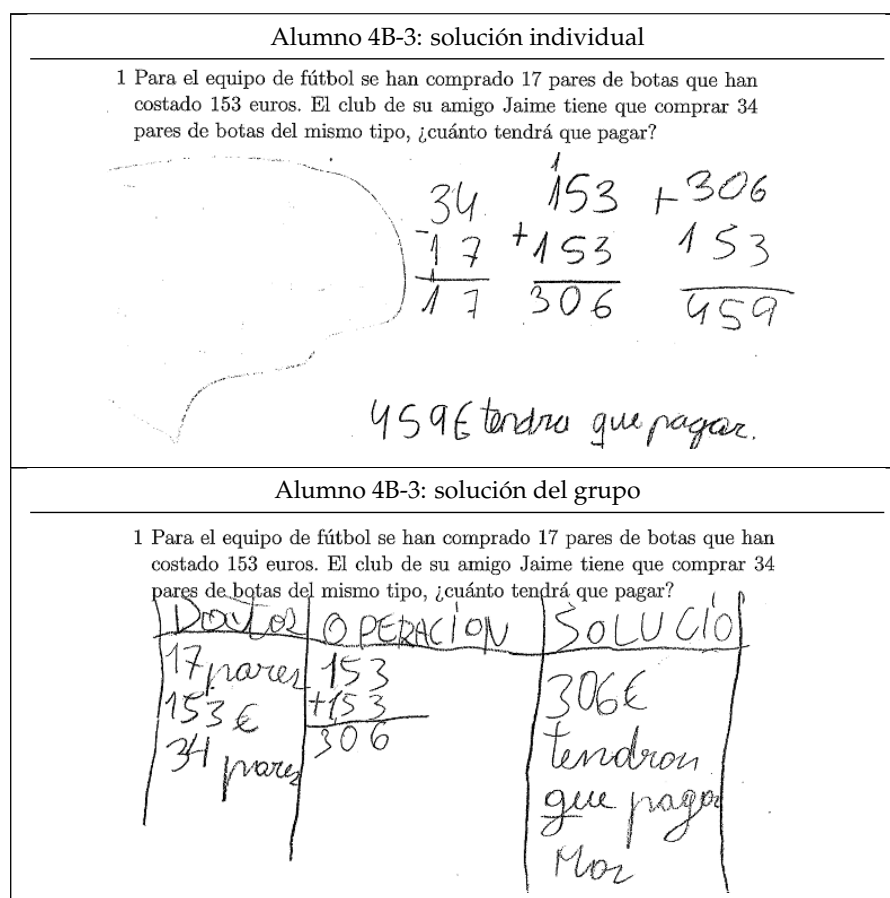 Alumno 4B-3: solución individual
1 Para el equipo de fútbol se han comprado 17 pares de botas que han
costado 153 euros. El club de su amigo Jaime tiene que comprar 34
pares de botas del mismo tipo, ¿cuánto tendrá que pagar?
1
34 153 +306
-17 +153 153
17 306 459
459€ tendra que pagar.
Alumno 4B-3: solución del grupo
1 Para el equipo de fútbol se han comprado 17 pares de botas que han
costado 153 euros. El club de su amigo Jaime tiene que comprar 34
pares de botas del mismo tipo, ¿cuánto tendrá que pagar?
DATOS OPERACIÓN SOLUCIÓ
17 pares 153 306€
153€ +153 tendron
34 pares 306 que pagar